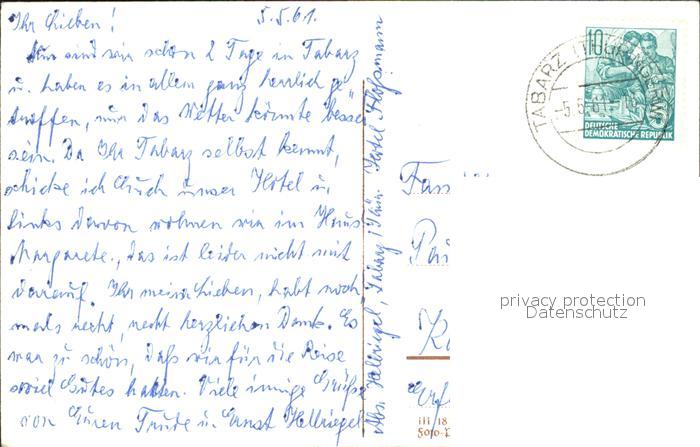 Ihr Lieben! 5.5.61.
Nun sind wir schon 2 Tage in Tabarz
u. haben es in allem ganz herrlich ge-
troffen, nur das Wetter könnte besser
sein. Da Ihr Tabarz selbst kennt,
schicke ich Euch unser Hotel u.
links davon wohnen wir im Haus
Margarete, das ist leider nicht mit
darauf. Ihr meine Lieben, habt noch
mals recht, recht herzlichen Dank. Es
war zu schön, daß wir für die Reise
soviel Gutes hatten. Viele innige Grüße
von Euren Trude u. Ernst Hellriegel
Abs. Hellriegel, Tabarz / Thür. Hotel
Fam
10
DEUTSCHE
DEMOKRATISCHE REPUBLIK
TABARZ (THÜRINGEN)
-5.5.61
privacy protection
Datenschutz
III 18